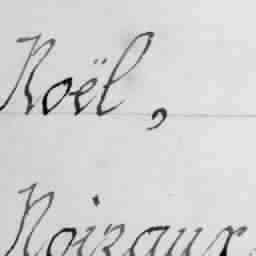 Noël,
Noizaux